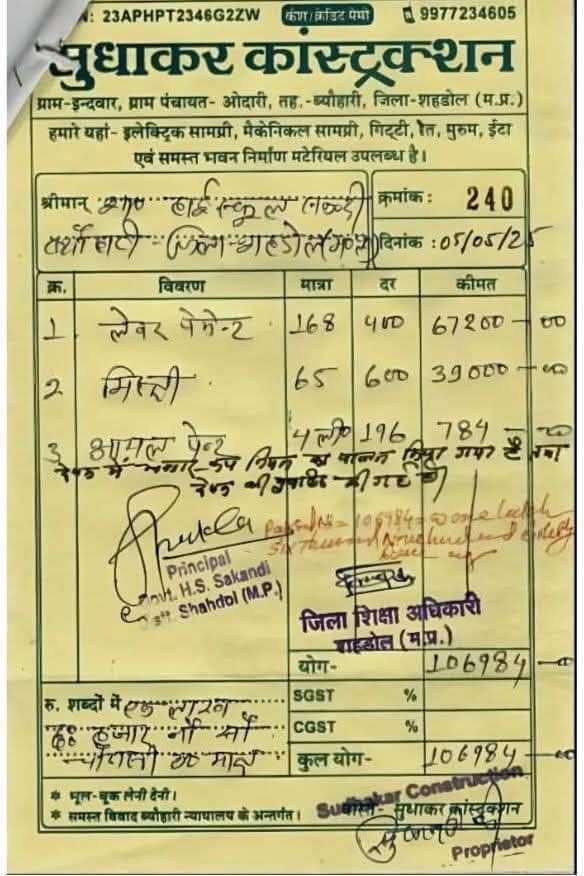 : 23APHPT2346G2ZW कैश/क्रेडिट मेमो 9977234605
सुधाकर कांस्ट्रक्शन
ग्राम-इन्दवार, ग्राम पंचायत- ओदारी, तह.-ब्यौहारी, जिला-शहडोल (म.प्र.)
हमारे यहां- इलेक्ट्रिक सामग्री, मैकेनिकल सामग्री, गिट्टी, रेत, मुरुम, ईटा
एवं समस्त भवन निर्माण मटेरियल उपलब्ध है।
श्रीमान् हाई स्कूल क्रमांक: 240
दिनांक : 05/05/25
क्र. विवरण मात्रा दर कीमत
1 लेवर पेमेन्ट 168 400 67200-00
2 मिस्त्री 65 600 39000-00
3 आयल पेन्ट 4 ली० 196 784-00
Passed Rs = 106984 = one lakh
Six thousand Nine hundred and eighty
Principal
Govt. H.S. Sakandi
Distt. Shahdol (M.P.)
जिला शिक्षा अधिकारी
शहडोल (म.प्र.)
योग- 106984-00
रु. शब्दों में एक लाख SGST %
छः हजार नौ सौ CGST %
मात्र कुल योग- 106984-00
* भूल-चूक लेनी देनी।
* समस्त विवाद ब्यौहारी न्यायालय के अन्तर्गत।
Sudhakar Construction
वास्ते- सुधाकर कांस्ट्रक्शन
Proprietor